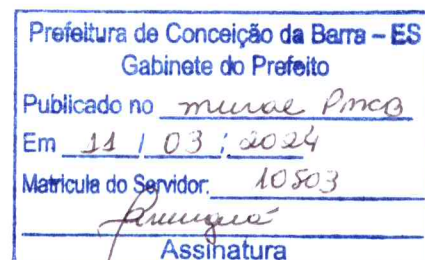 Prefeitura de Conceição da Barra – ES
Gabinete do Prefeito
Publicado no mural PMCB
Em 11 / 03 / 2024
Matricula do Servidor: 10503
Assinatura